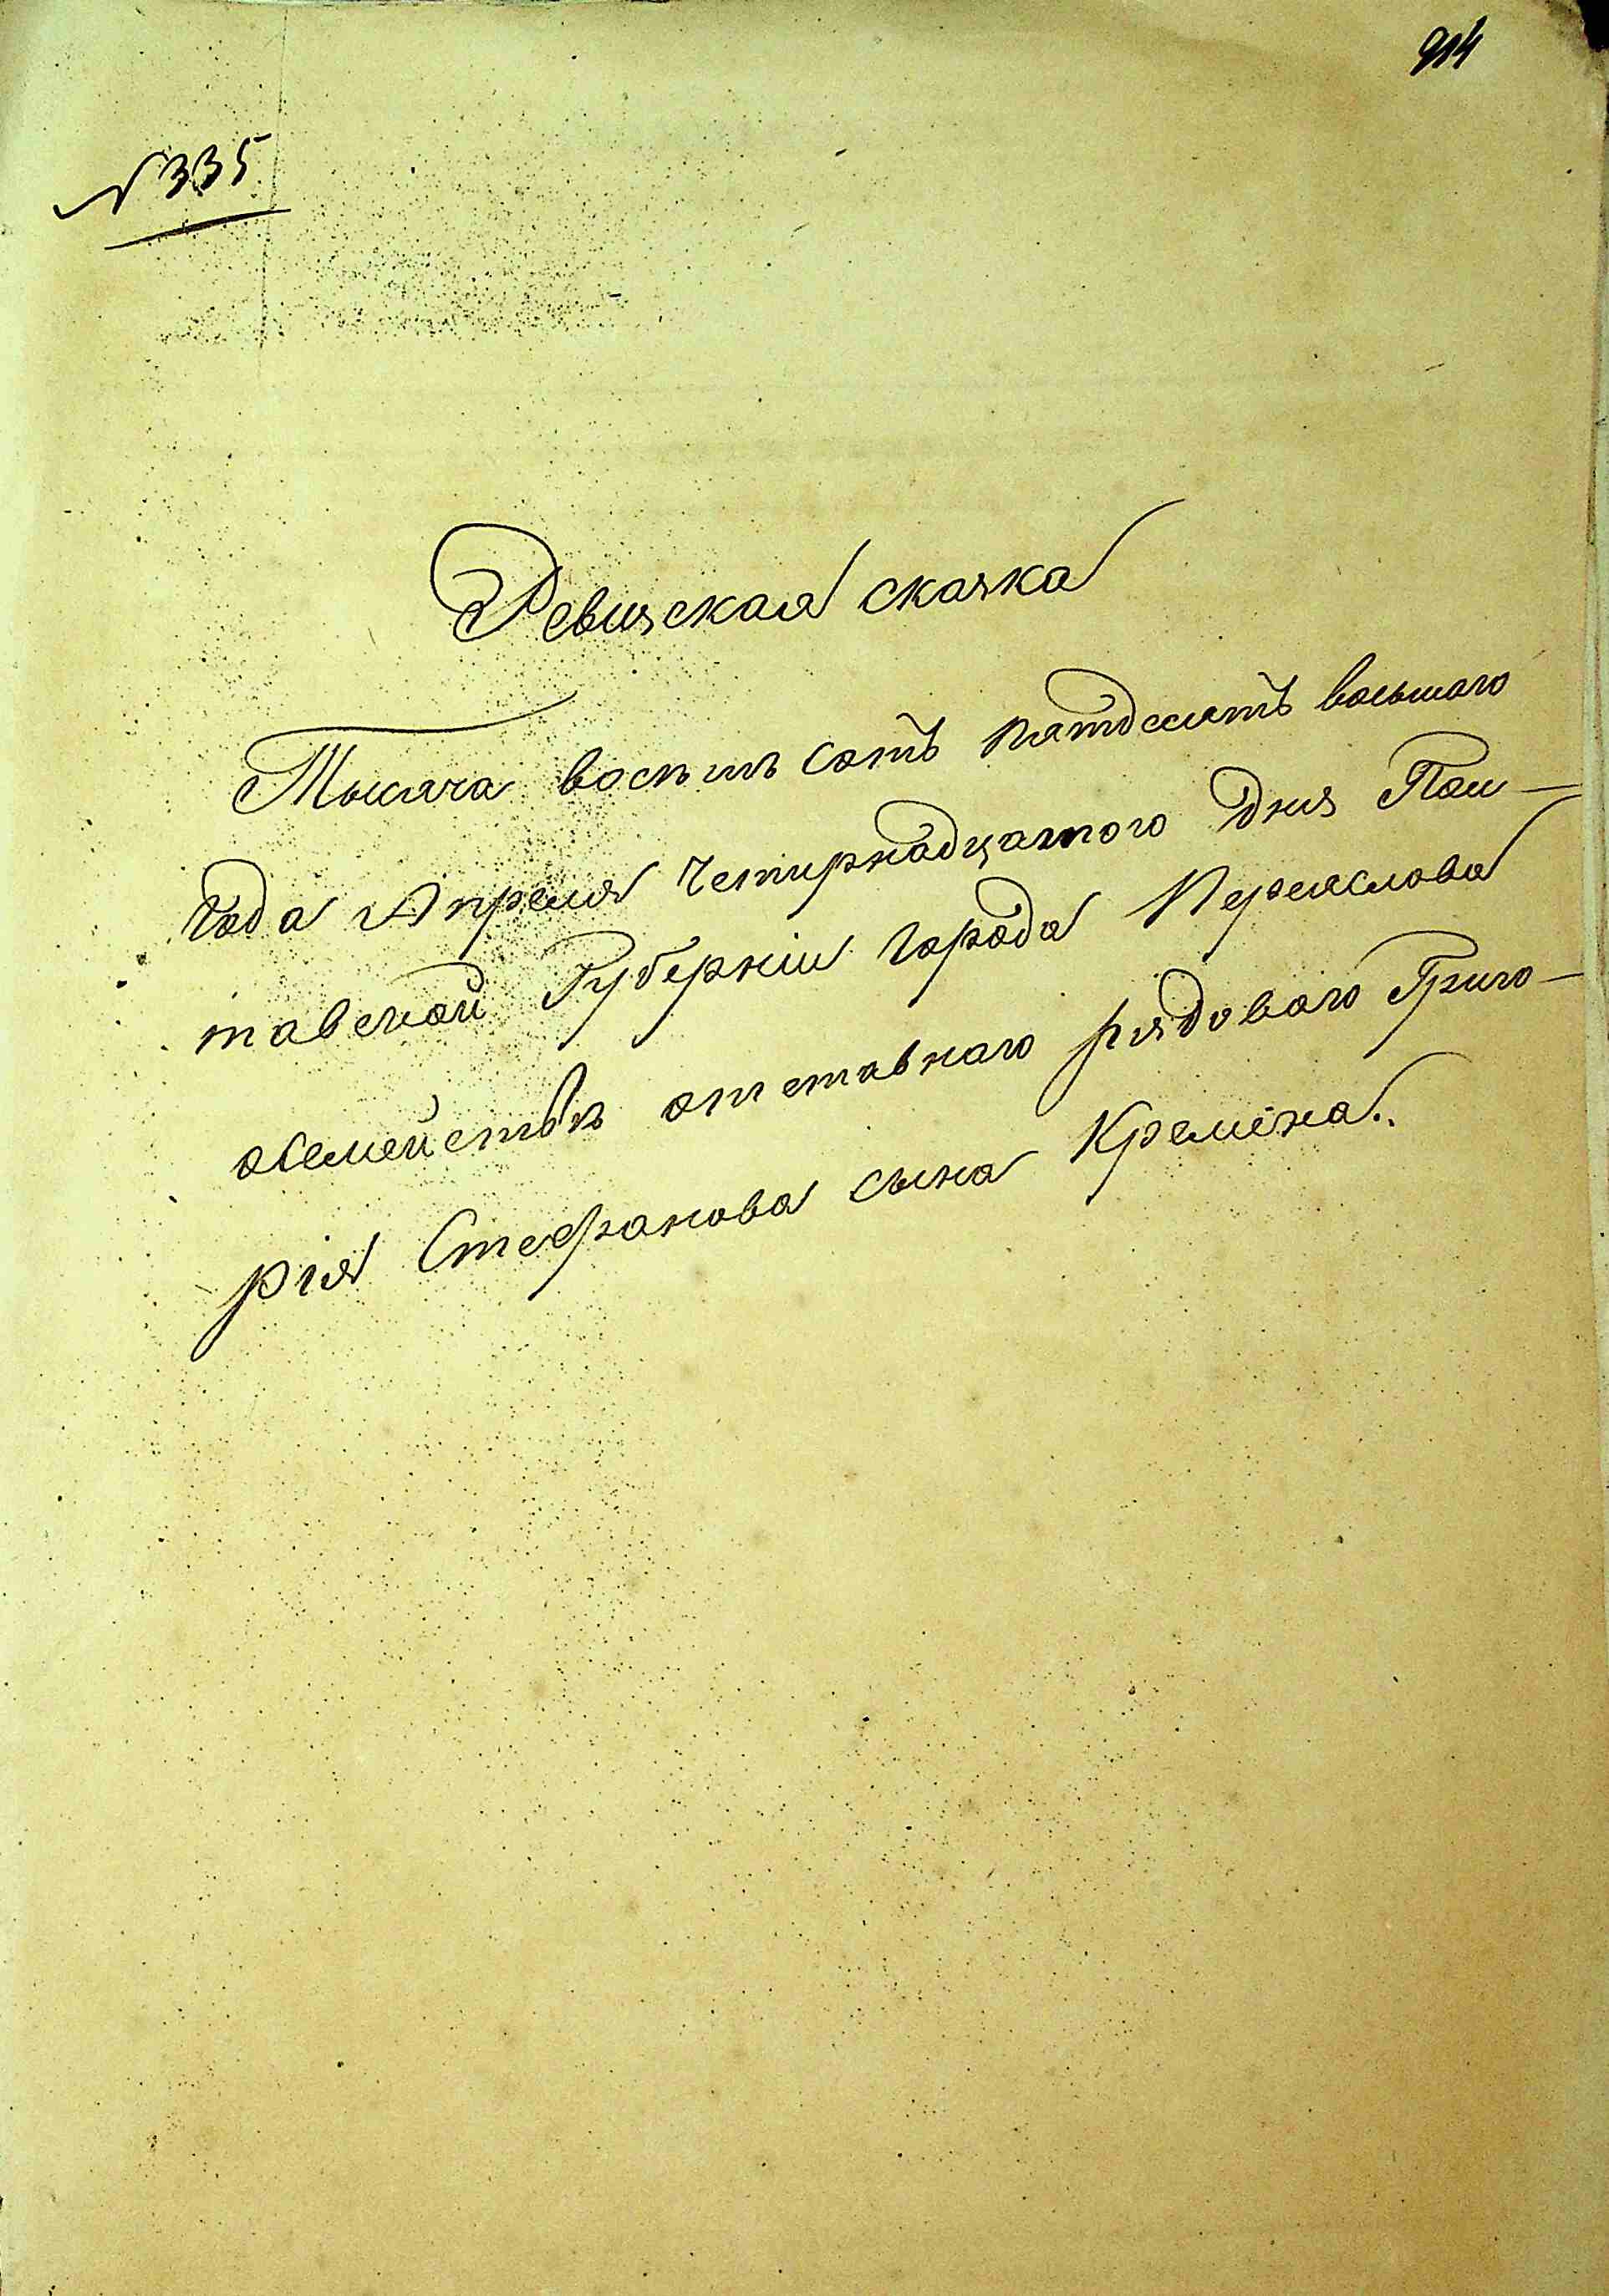 914
№ 335
Ревизская сказка
Тысяча восемь сотъ пятдесятъ восьмаго
года Апреля Четирнадцатого дня Пол-
тавской Губерніи города Переяслова
о семействѣ отставнаго рядоваго Григо-
рія Стефанова сына Кремена.